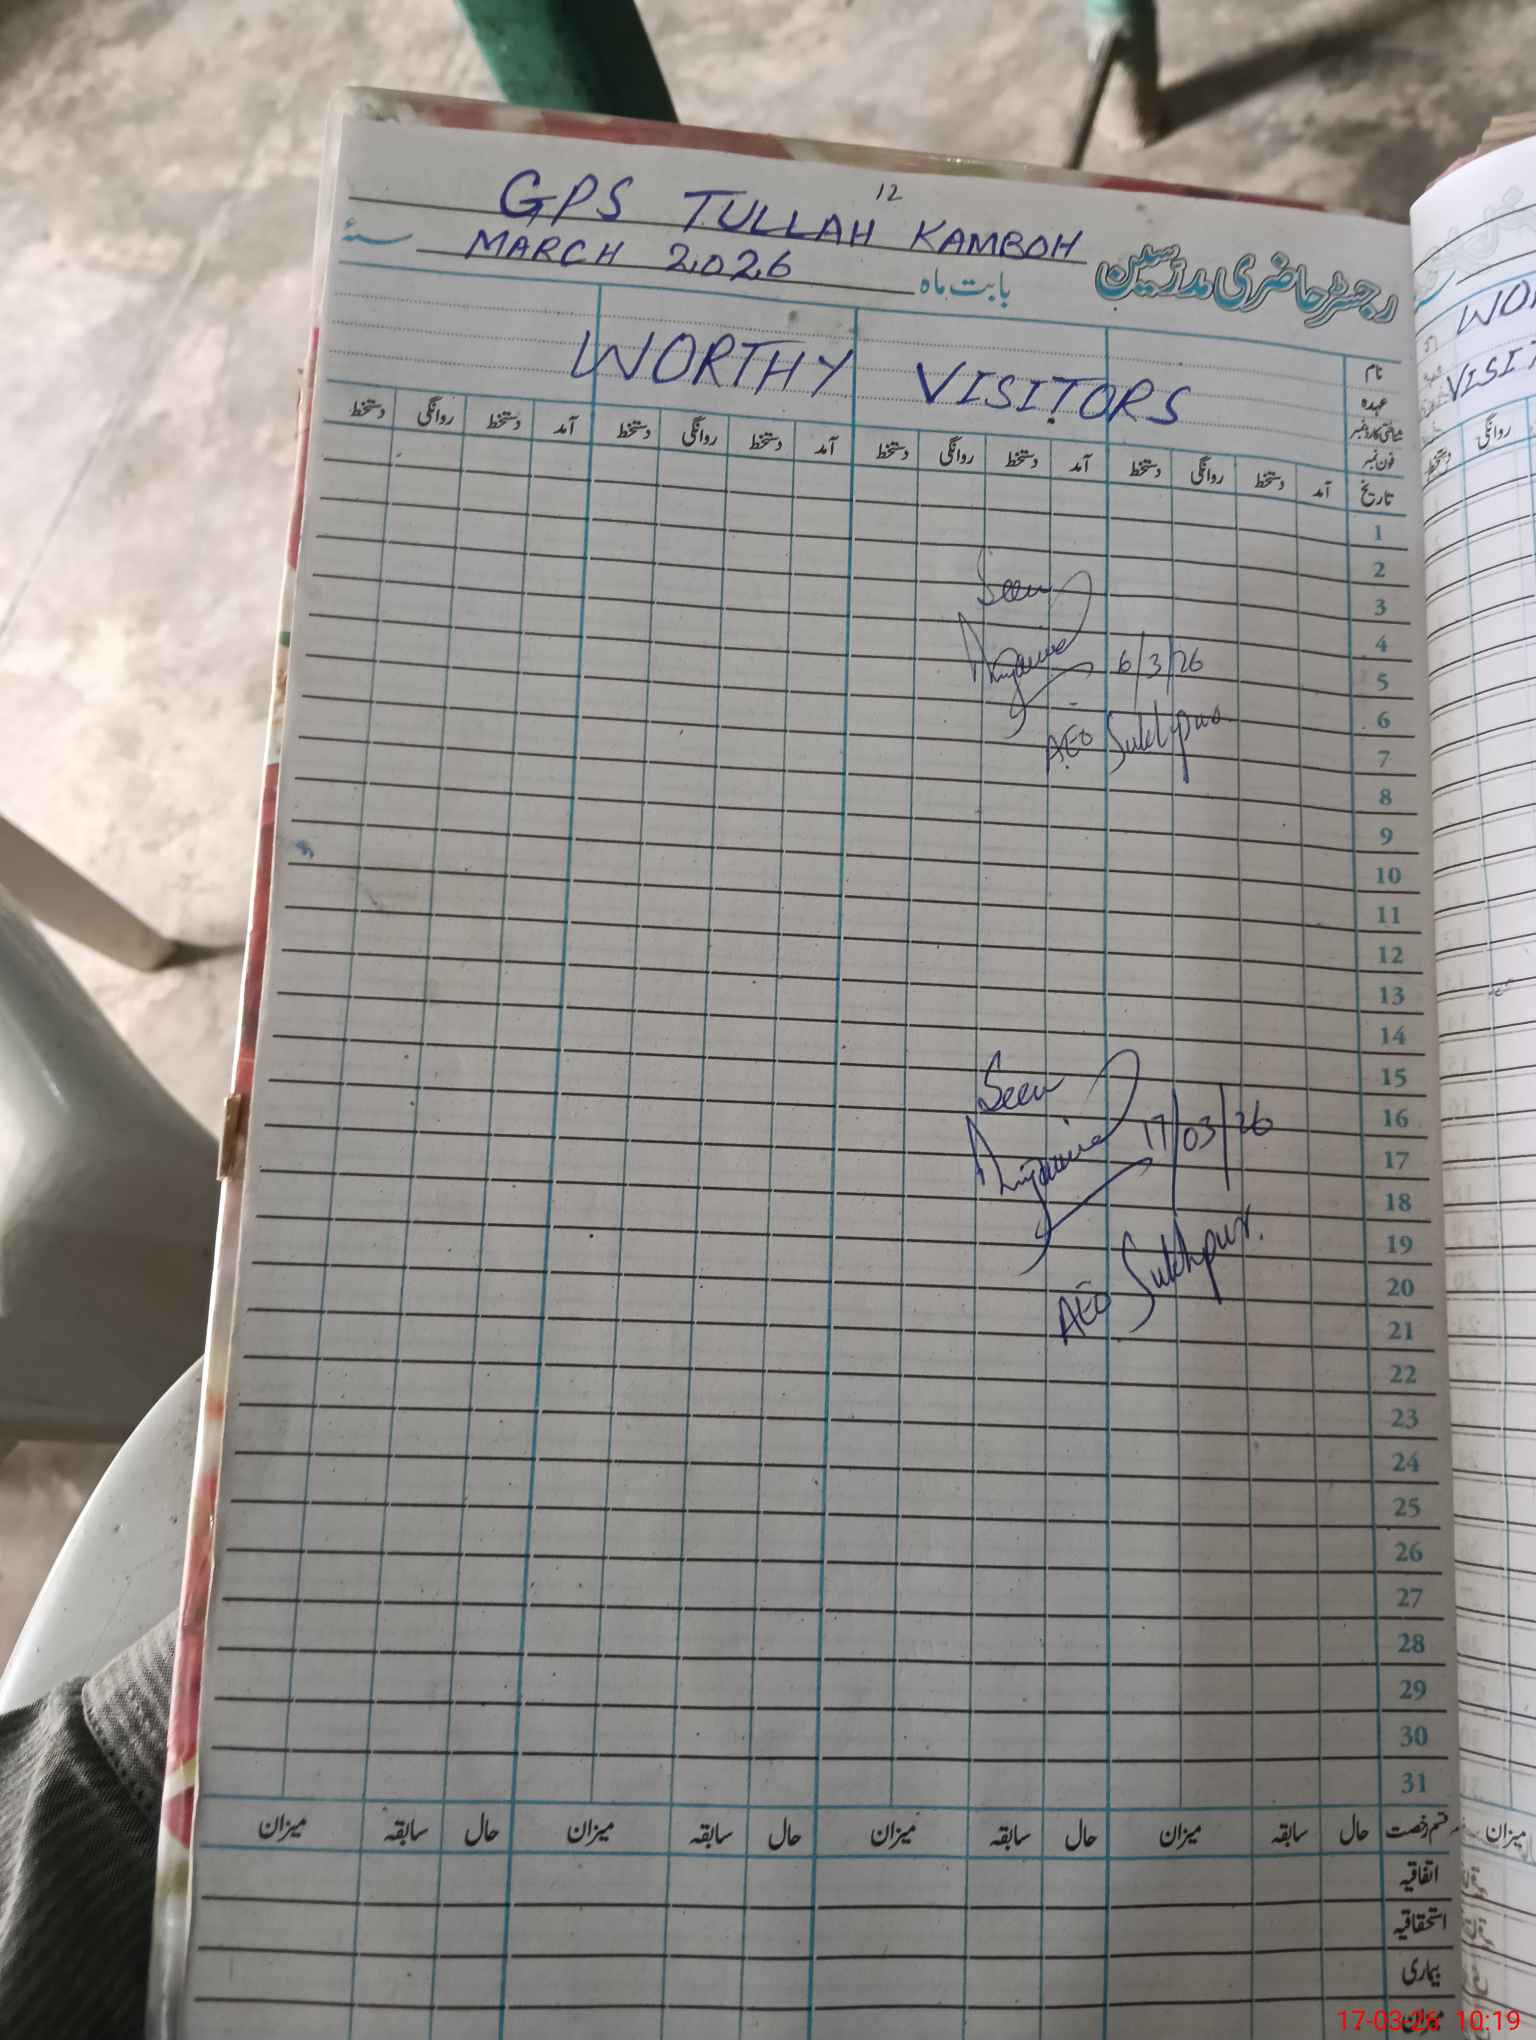 12
GPS TULLAH KAMBOH
رجسٹر حاضری مدرسین
بابت ماہ MARCH 2026 سنہ
WORTHY VISITORS
نام
عہدہ
شناختی کارڈ نمبر
فون نمبر
تاریخ آمد دستخط روانگی دستخط آمد دستخط روانگی دستخط آمد دستخط روانگی دستخط آمد دستخط روانگی دستخط
1
2
3
4
5
6
7
8
9
10
11
12
13
14
15
16
17
18
19
20
21
22
23
24
25
26
27
28
29
30
31
Seen
6/3/26
AEO Sukhpur
Seen
17/03/26
AEO Sukhpur.
قسم رخصت حال سابقہ میزان حال سابقہ میزان حال سابقہ میزان حال سابقہ میزان
اتفاقیہ
استحقاقیہ
بیماری
میزان
WOR
VISIT
روانگی
دستخط
میزان
17-03-26 10:19